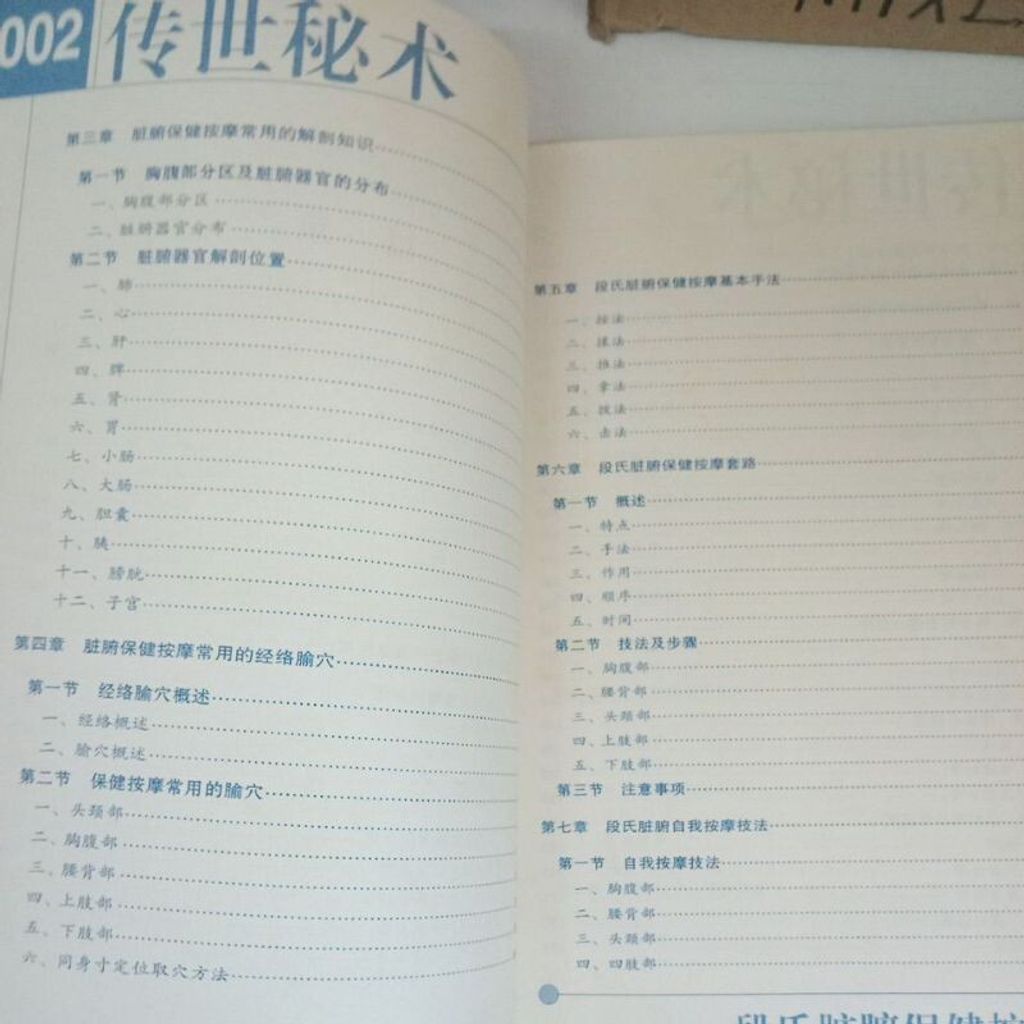 002
传世秘术
第三章 脏腑保健按摩常用的解剖知识
第一节 胸腹部分区及脏腑器官的分布
一、胸腹部分区
二、脏腑器官分布
第二节 脏腑器官解剖位置
一、肺
二、心
三、肝
四、脾
五、肾
六、胃
七、小肠
八、大肠
九、胆囊
十、胰
十一、膀胱
十二、子宫
第四章 脏腑保健按摩常用的经络腧穴
第一节 经络腧穴概述
一、经络概述
二、腧穴概述
第二节 保健按摩常用的腧穴
一、头颈部
二、胸腹部
三、腰背部
四、上肢部
五、下肢部
六、同身寸定位取穴方法
第五章 段氏脏腑保健按摩基本手法
一、按法
二、揉法
三、推法
四、拿法
五、拨法
六、击法
第六章 段氏脏腑保健按摩套路
第一节 概述
一、特点
二、手法
三、作用
四、顺序
五、时间
第二节 技法及步骤
一、胸腹部
二、腰背部
三、头颈部
四、上肢部
五、下肢部
第三节 注意事项
第七章 段氏脏腑自我按摩技法
第一节 自我按摩技法
一、胸腹部
二、腰背部
三、头颈部
四、四肢部
段氏脏腑保健按